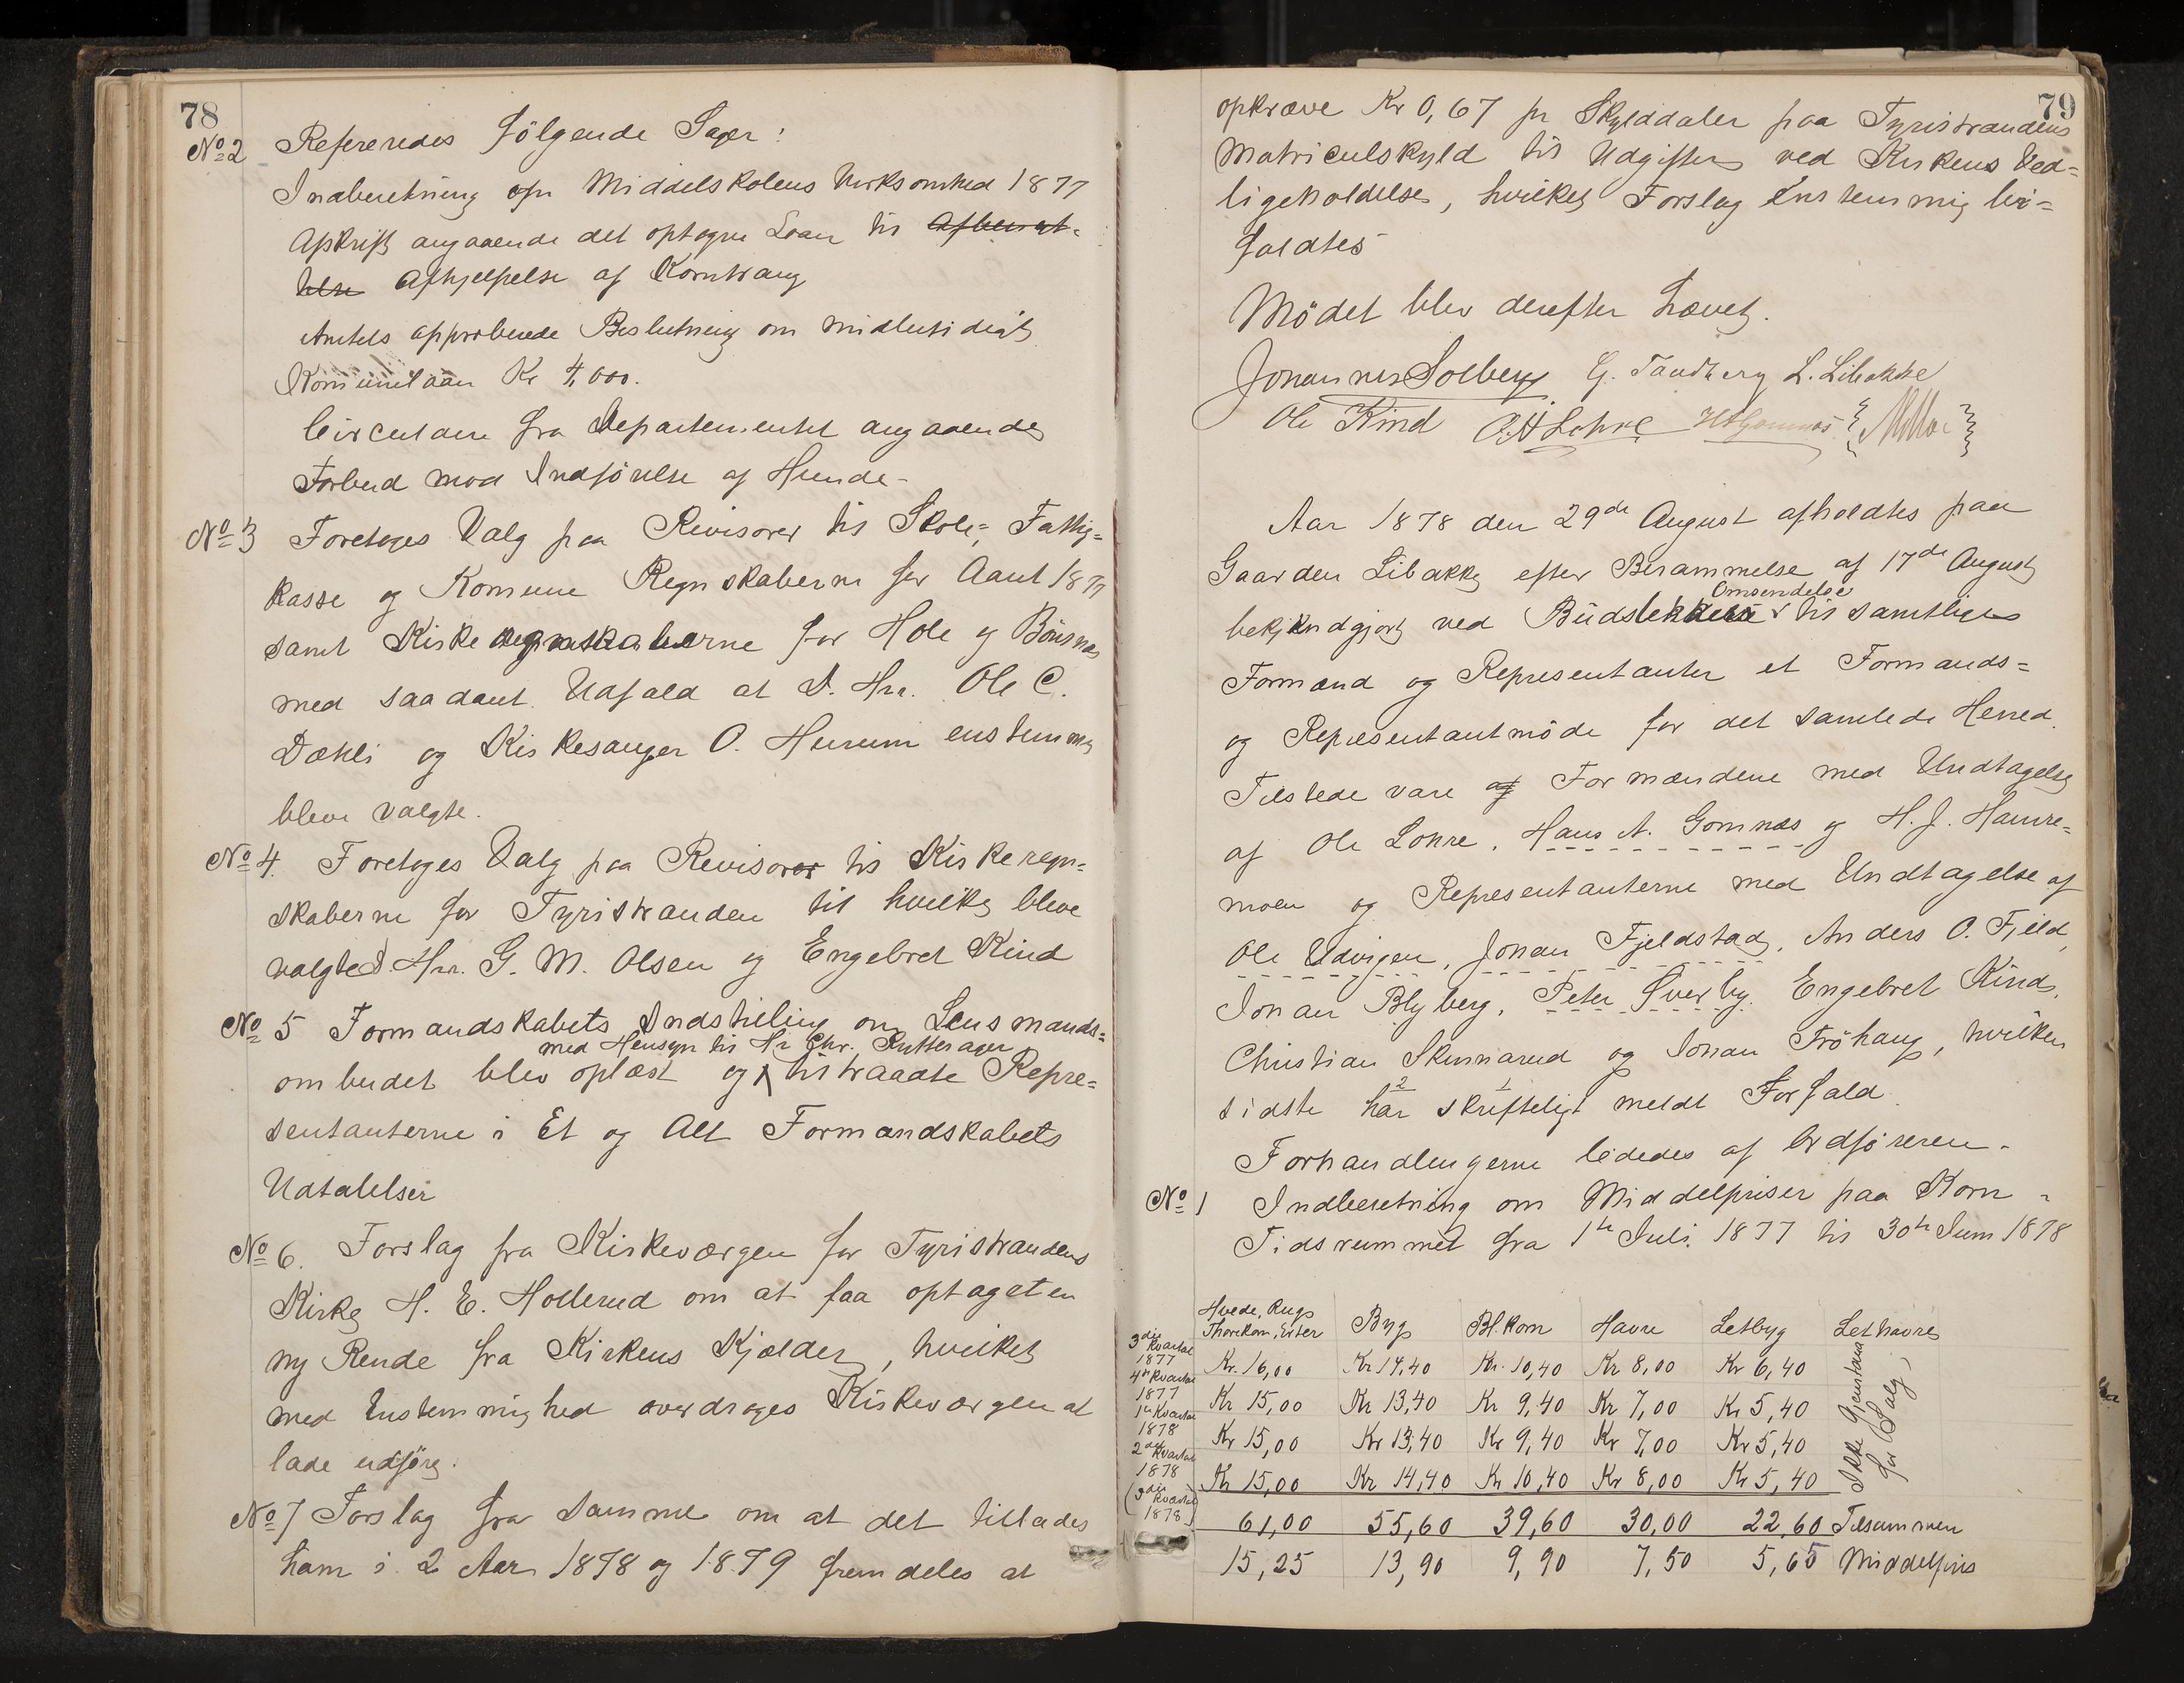 78
No 2 Refereredes følgende Sager:
Indberetning om Middelskolens Virksomhed 1877
Afskrift angaaende det optagne Laan til Afbenyt-
telse Afhjelpelse af Korntrang
Amtets approberede Beslutning om midlertidigt
Komunelaan Kr 4,000.
Circulære fra Departementet angaaende
Forbud mod Indførelse af Hunde-
No 3 Foretoges Valg paa Revisorer til Skole-, Fattig=
kasse og Komune Regnskaberne for Aaret 1877
samt Kirkeregnskaberne for Hole og Bønsnæs
med saadant Udfald at D. Hrr. Ole C.
Dæhli og Kirkesanger O. Hurum enstemmig
bleve valgte.
No 4. Foretoges Valg paa Revisorer til Kirkeregn=
skaberne for Tyristranden til hvilke bleve
valgte D. Hrr. G. M. Olsen og Engebret Kind
No 5 Formandskabets Indstilling om Lensmands=
med Hensyn til Hr Chr. Rytterager
ombudet blev oplæst og tiltraadte Repre=
sentanterne i Et og Alt Formandskabets
Udtalelser
No 6. Forslag fra Kirkeværgen for Tyristrandens
Kirke H. E. Hollerud om at faa optaget en
ny Rende fra Kirkens Kjælder, hvilket
med Enstemmighed overdroges Kirkeværgen at
lade udføre.
No 7 Forslag fra Samme om at det tillades
ham i 2 Aar 1878 og 1879 fremdeles at
79
opkræve Kr 0,67 pr Skylddaler paa Tyristrandens
Matriculskyld til Udgifter ved Kirkens Ved=
ligeholdelse, hvilket Forslag Enstemmig bi=
faldtes
Mødet blev derefter hævet.
Johannes Solberg G. Tandberg L. Libakke
Ole Kind O. H Lohre H A Gomnæs
Aar 1878 den 29de August afholdtes paa
Gaarden Libakke efter Berammelse af 17de August
Omsendelse
bekjendgjort ved Budstikkens til samtlige
Formænd og Representanter et Formands=
og Representantmøde for det samlede Herred.
Tilstede vare af Formændene med Undtagelse
af Ole Lohre, Hans A. Gomnæs og H. J. Hamre=
moen og Representanterne med Undtagelse af
Ole Udvigen, Johan Fjeldstad, Anders O. Fjeld,
Johan Blyberg, Peter Øverby, Engebret Kind,
Christian Skinnarud og Johan Frøhaug, hvilken
2 1
sidste har skrifteligt meldt Forfald.
Forhandlingerne lededes af Ordføreren.
No 1 Indberetning om Middelpriser paa Korn i
Tidsrummet fra 1te Juli 1877 til 30te Juni 1878
Hvede, Rug,
Thorekorn, Erter Byg Bl.korn Havre Letbyg Lethavre
3die Kvartal 1877 Kr. 16,00 Kr 14,40 Kr. 10,40 Kr 8,00 Kr 6,40
4de Kvartal 1877 Kr 15,00 Kr 13,40 Kr 9,40 Kr 7,00 Kr 5,40
1te Kvartal 1878 Kr 15,00 Kr 13,40 Kr 9,40 Kr 7,00 Kr 5,40
2det Kvartal 1878 Kr 15,00 Kr 14,40 Kr 10,40 Kr 8,00 Kr 5,40
(3die Kvartal 1878)
Ikke Gjenstand
for Salg
61,00 55,60 39,60 30,00 22,60 Tilsammen
15,25 13,90 9,90 7,50 5,65 Middelpris